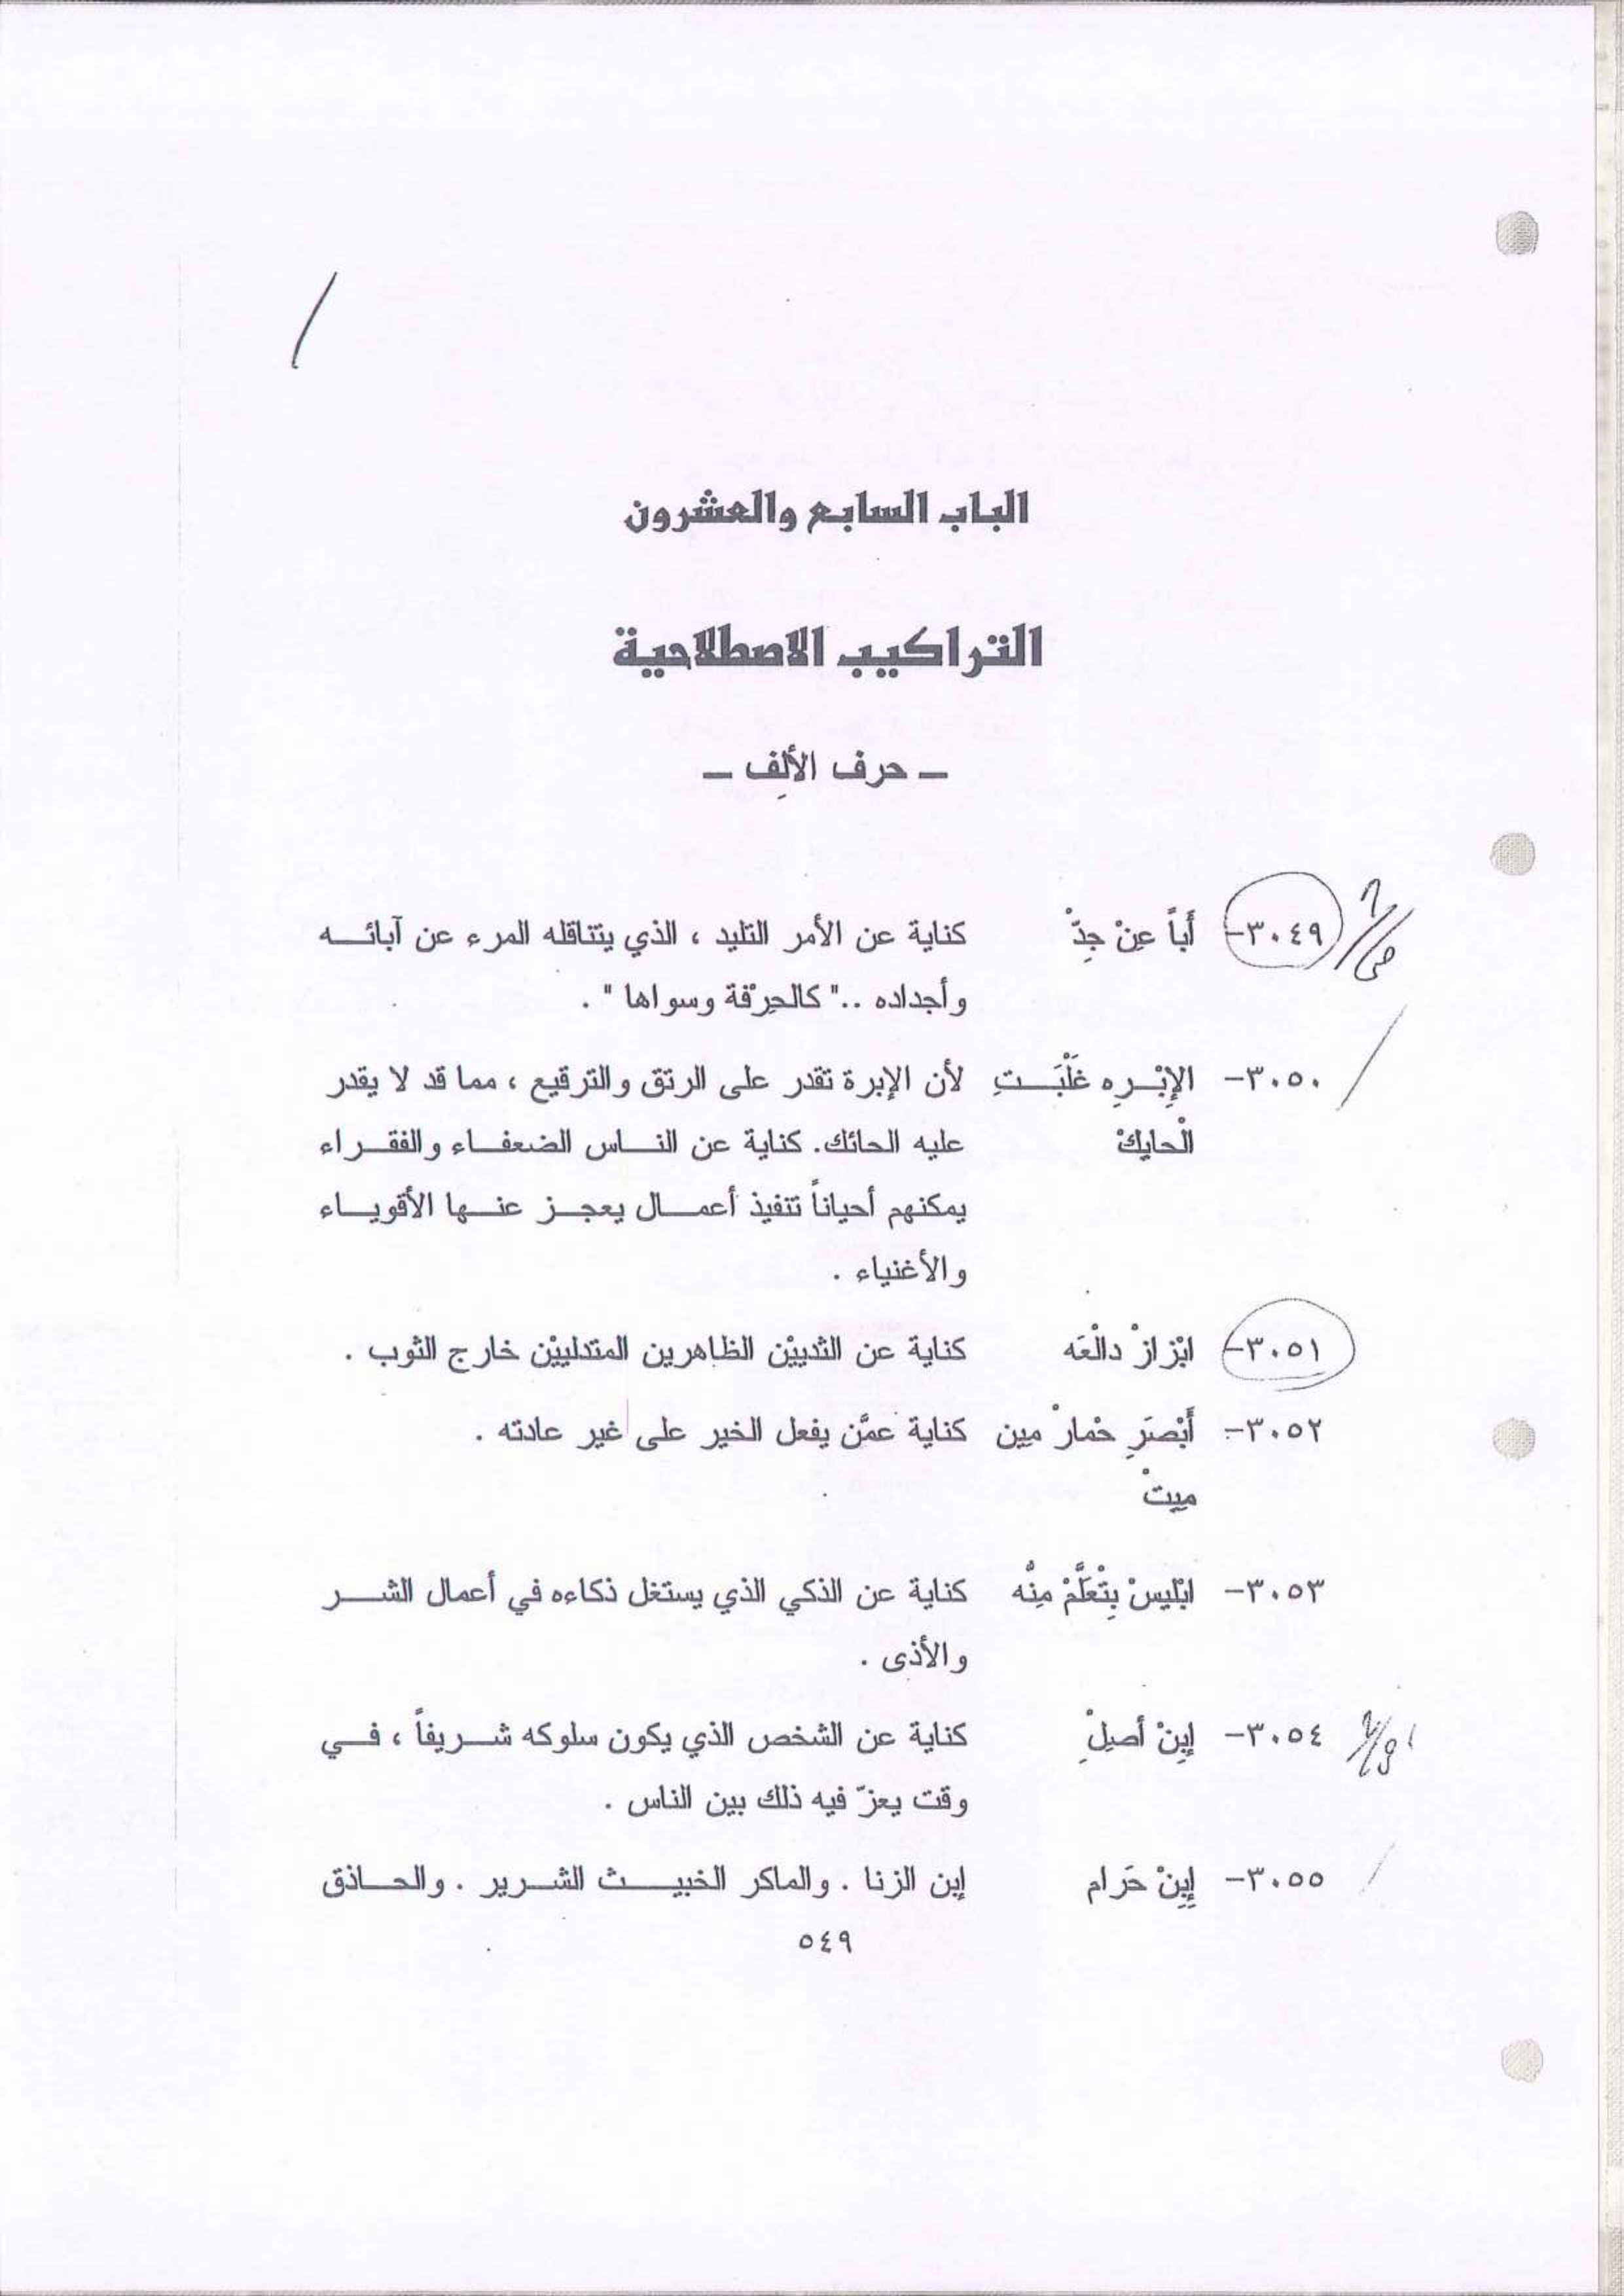 الباب السابع والعشرون
التراكيب الاصطلاحية
– حرف الألِف –
٣٠٤٩- أَباً عِنْ جِدّْ كناية عن الأمر التليد ، الذي يتناقله المرء عن آبائه
وأجداده .." كالحِرْفة وسواها " .
٣٠٥٠- الإِبْرِه غَلْبَتِ لأن الإبرة تقدر على الرتق والترقيع ، مما قد لا يقدر
الْحايِكْ عليه الحائك. كناية عن الناس الضعفاء والفقراء
يمكنهم أحياناً تنفيذ أعمال يعجز عنها الأقوياء
والأغنياء .
٣٠٥١- ابْزازْ دالْعَه كناية عن الثدييْن الظاهرين المتدلييْن خارج الثوب .
٣٠٥٢- أَبْصَرِ حْمارْ مين كناية عمَّن يفعل الخير على غير عادته .
مِيِتْ
٣٠٥٣- ابْليسْ بِتْعَلَّمْ مِنُّه كناية عن الذكي الذي يستغل ذكاءه في أعمال الشر
والأذى .
٣٠٥٤- إِبِنْ أصِلِْ كناية عن الشخص الذي يكون سلوكه شريفاً ، في
وقت يعزّ فيه ذلك بين الناس .
٣٠٥٥- إِبِنْ حَرام إبن الزنا . والماكر الخبيث الشرير . والحاذق
٥٤٩